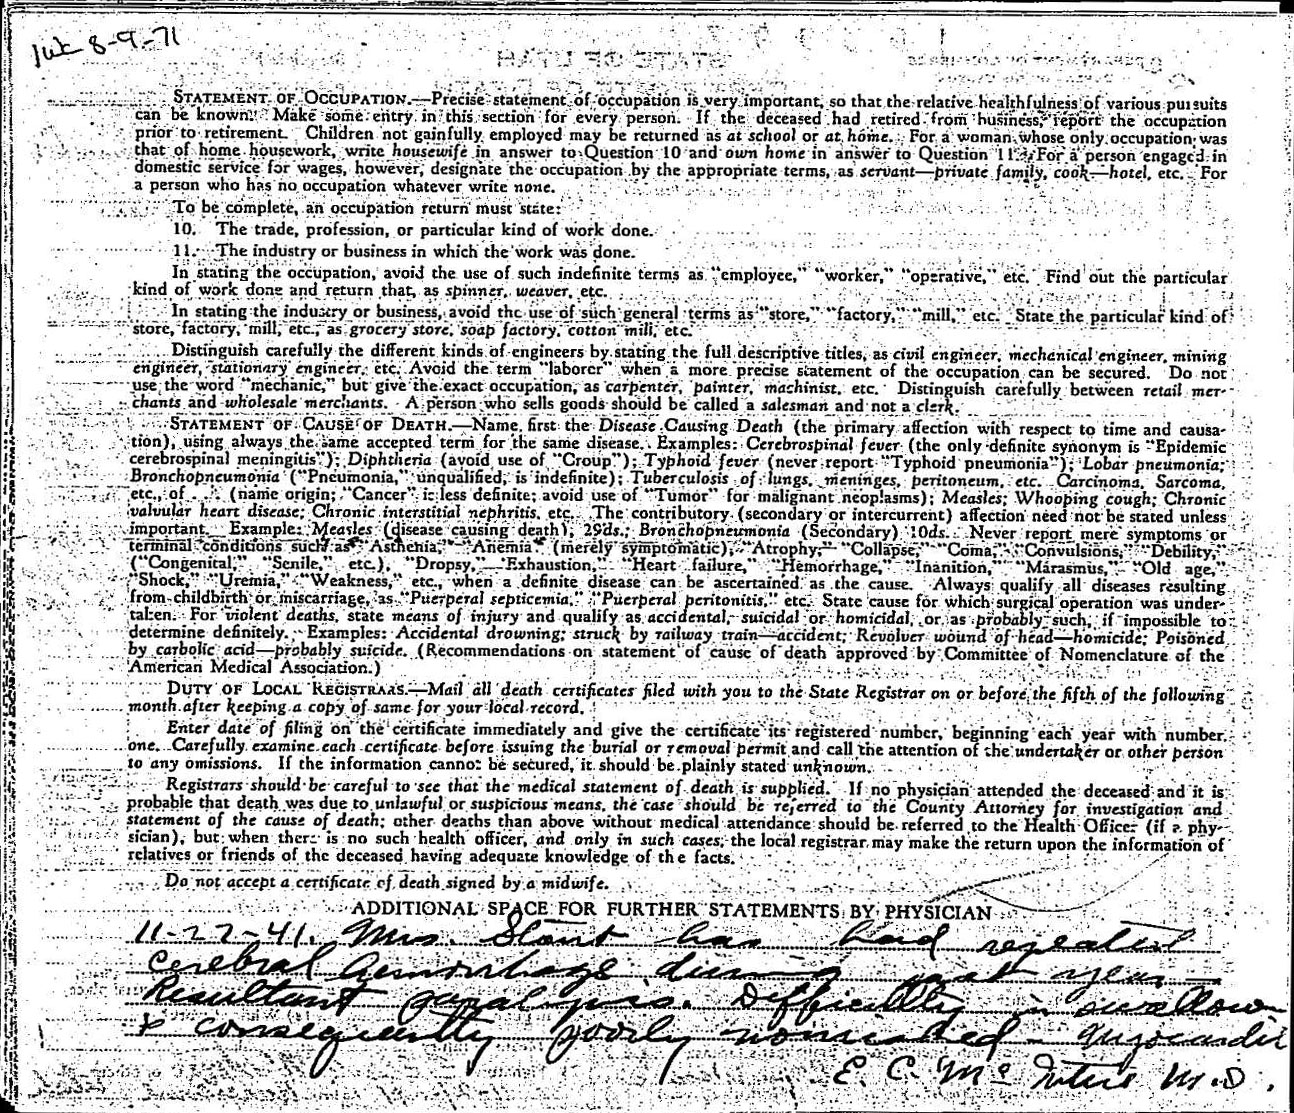 8-9-71
STATE OF UTAH
STATEMENT OF OCCUPATION.—Precise statement of occupation is very important, so that the relative healthfulness of various pursuits
can be known. Make some entry in this section for every person. If the deceased had retired from business, report the occupation
prior to retirement. Children not gainfully employed may be returned as at school or at home. For a woman whose only occupation was
that of home housework, write housewife in answer to Question 10 and own home in answer to Question 11. For a person engaged in
domestic service for wages, however, designate the occupation by the appropriate terms, as servant—private family, cook—hotel, etc. For
a person who has no occupation whatever write none.
To be complete, an occupation return must state:
10. The trade, profession, or particular kind of work done.
11. The industry or business in which the work was done.
In stating the occupation, avoid the use of such indefinite terms as "employee," "worker," "operative," etc. Find out the particular
kind of work done and return that, as spinner, weaver, etc.
In stating the industry or business, avoid the use of such general terms as "store," "factory," "mill," etc. State the particular kind of
store, factory, mill, etc., as grocery store, soap factory, cotton mill, etc.
Distinguish carefully the different kinds of engineers by stating the full descriptive titles, as civil engineer, mechanical engineer, mining
engineer, stationary engineer, etc. Avoid the term "laborer" when a more precise statement of the occupation can be secured. Do not
use the word "mechanic," but give the exact occupation, as carpenter, painter, machinist, etc. Distinguish carefully between retail mer-
chants and wholesale merchants. A person who sells goods should be called a salesman and not a clerk.
STATEMENT OF CAUSE OF DEATH.—Name first the Disease Causing Death (the primary affection with respect to time and causa-
tion), using always the same accepted term for the same disease. Examples: Cerebrospinal fever (the only definite synonym is "Epidemic
cerebrospinal meningitis"); Diphtheria (avoid use of "Croup"); Typhoid fever (never report "Typhoid pneumonia"); Lobar pneumonia;
Bronchopneumonia ("Pneumonia," unqualified, is indefinite); Tuberculosis of lungs, meninges, peritoneum, etc. Carcinoma, Sarcoma,
etc., of . . . (name origin; "Cancer" is less definite; avoid use of "Tumor" for malignant neoplasms); Measles; Whooping cough; Chronic
valvular heart disease; Chronic interstitial nephritis, etc. The contributory (secondary or intercurrent) affection need not be stated unless
important. Example: Measles (disease causing death), 29ds.; Bronchopneumonia (Secondary) 10ds. Never report mere symptoms or
terminal conditions such as "Asthenia," "Anemia" (merely symptomatic), "Atrophy," "Collapse," "Coma," "Convulsions," "Debility,"
("Congenital," "Senile," etc.), "Dropsy," "Exhaustion," "Heart failure," "Hemorrhage," "Inanition," "Marasmus," "Old age,"
"Shock," "Uremia," "Weakness," etc., when a definite disease can be ascertained as the cause. Always qualify all diseases resulting
from childbirth or miscarriage, as "Puerperal septicemia," "Puerperal peritonitis," etc. State cause for which surgical operation was under-
taken. For violent deaths, state means of injury and qualify as accidental, suicidal or homicidal, or as probably such, if impossible to
determine definitely. Examples: Accidental drowning; struck by railway train—accident; Revolver wound of head—homicide; Poisoned
by carbolic acid—probably suicide. (Recommendations on statement of cause of death approved by Committee of Nomenclature of the
American Medical Association.)
DUTY OF LOCAL REGISTRARS.—Mail all death certificates filed with you to the State Registrar on or before the fifth of the following
month after keeping a copy of same for your local record.
Enter date of filing on the certificate immediately and give the certificate its registered number, beginning each year with number
one. Carefully examine each certificate before issuing the burial or removal permit and call the attention of the undertaker or other person
to any omissions. If the information cannot be secured, it should be plainly stated unknown.
Registrars should be careful to see that the medical statement of death is supplied. If no physician attended the deceased and it is
probable that death was due to unlawful or suspicious means, the case should be referred to the County Attorney for investigation and
statement of the cause of death; other deaths than above without medical attendance should be referred to the Health Officer (if a phy-
sician), but when there is no such health officer, and only in such cases, the local registrar may make the return upon the information of
relatives or friends of the deceased having adequate knowledge of the facts.
Do not accept a certificate of death signed by a midwife.
ADDITIONAL SPACE FOR FURTHER STATEMENTS BY PHYSICIAN
11-27-41. Mrs. Stout has had repeated
cerebral hemorrhage during past year
Resultant paralysis. Difficulty in swallow
& consequently poorly nourished -
E. C. McIntire M.D.